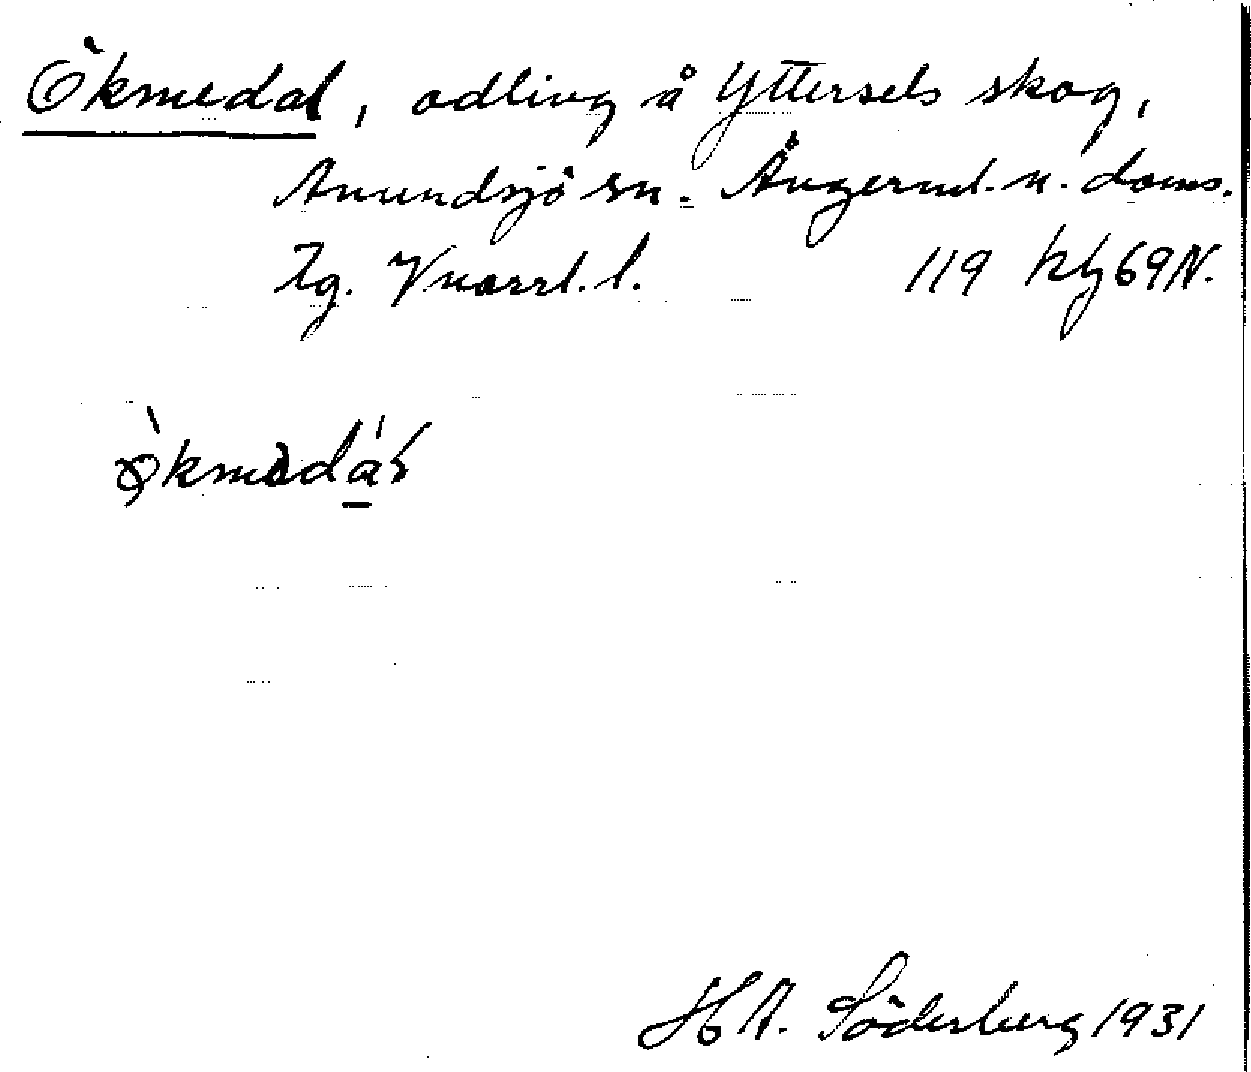 Ökmedal, odling å Yttersels skog,
Anundsjö sn. Ångerml. n. doms.
Tg. Vnorrl. l. 119 kbj 69 N.
H A. Söderberg 1931